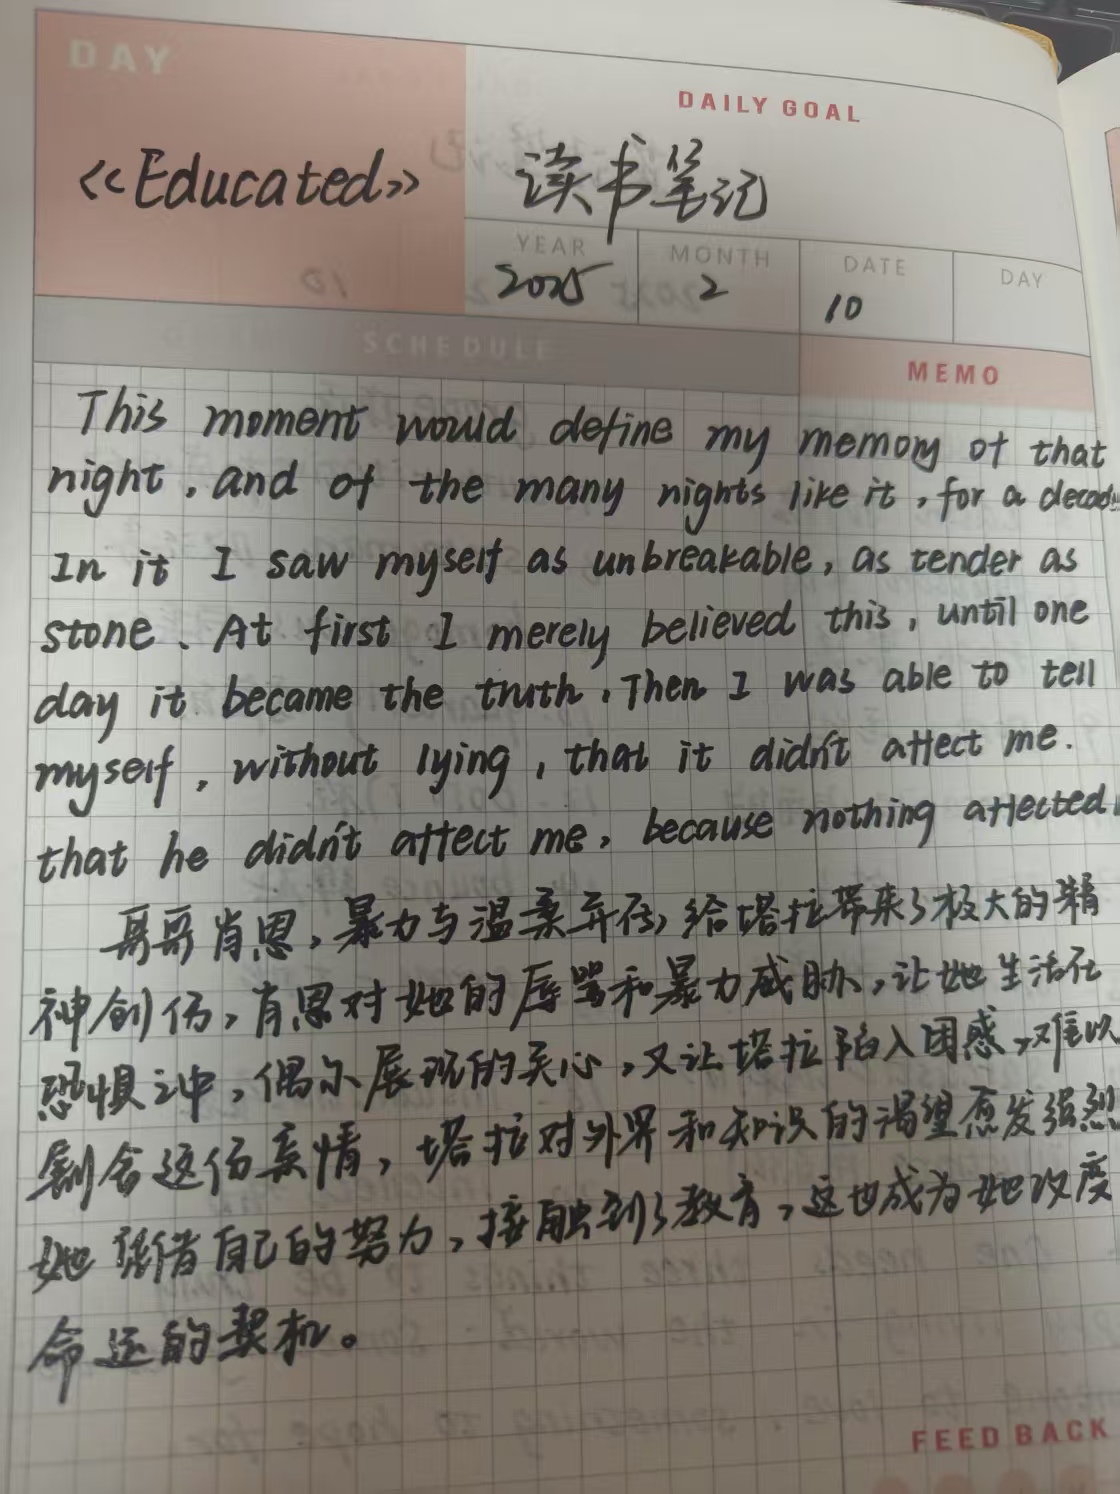 DAY
DAILY GOAL
<<Educated>>
读书笔记
YEAR
MONTH
DATE
DAY
2025
2
10
SCHEDULE
MEMO
This moment would define my memory of that
night, and of the many nights like it, for a decade
In it I saw myself as unbreakable, as tender as
stone. At first I merely believed this, until one
day it became the truth. Then I was able to tell
myself, without lying, that it didn't affect me.
that he didn't affect me, because nothing affected
哥哥肖恩,暴力与温柔并存,给塔拉带来了极大的精
神创伤,肖恩对她的辱骂和暴力威胁,让她生活在
恐惧之中,偶尔展现的关心,又让塔拉陷入困惑,难以
割舍这份亲情,塔拉对外界和知识的渴望愈发强烈
她凭借自己的努力,接触到了教育,这也成为她改变
命运的契机。
FEED BACK